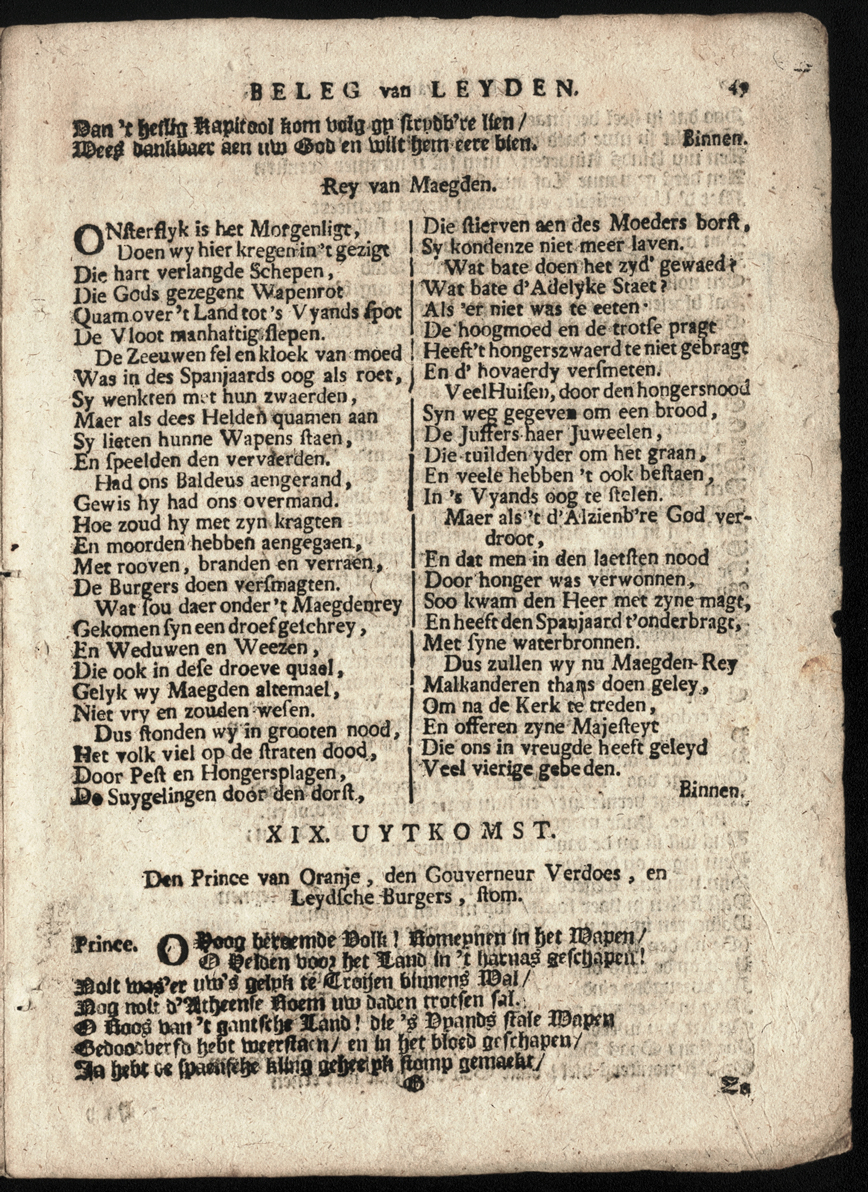 BELEG van LEYDEN. 49
Dan 't heilig Kapitool kom volg gy strydb're lien/
Wees dankbaer aen uw God en wilt hem eere bien. Binnen.
Rey van Maegden.
ONsterflyk is het Morgenligt,
Doen wy hier kregen in 't gezigt
Die hart verlangde Schepen,
Die Gods gezegent Wapenrot
Quam over 't Land tot 's Vyands spot
De Vloot manhaftig slepen.
De Zeeuwen fel en kloek van moed
Was in des Spanjaards oog als roet,
Sy wenkten met hun zwaerden,
Maer als dees Helden quamen aan
Sy lieten hunne Wapens staen,
En speelden den vervaerden.
Had ons Baldeus aengerand,
Gewis hy had ons overmand.
Hoe zoud hy met zyn kragten
En moorden hebben aengegaen,
Met rooven, branden en verraen,
De Burgers doen versmagten.
Wat sou daer onder 't Maegdenrey
Gekomen syn een droef geschrey,
En Weduwen en Weezen,
Die ook in dese droeve quael,
Gelyk wy Maegden altemael,
Niet vry en zouden wesen.
Dus stonden wy in grooten nood,
Het volk viel op de straten dood,
Door Pest en Hongersplagen,
De Suygelingen door den dorst,
Die stierven aen des Moeders borst,
Sy kondenze niet meer laven.
Wat bate doen het zyd' gewaed?
Wat bate d'Adelyke Staet?
Als 'er niet was te eeten.
De hoogmoed en de trotse pragt
Heeft't hongerszwaerd te niet gebragt
En d' hovaerdy versmeten.
Veel Huisen, door den hongersnood
Syn weg gegeven om een brood,
De Juffers haer Juweelen,
Die tuilden yder om het graan,
En veele hebben 't ook bestaen,
In 's Vyands oog te stelen.
Maer als 't d'Alzienb're God ver-
droot,
En dat men in den laetsten nood
Door honger was verwonnen,
Soo kwam den Heer met zyne magt,
En heeft den Spanjaard t'onderbragt,
Met syne waterbronnen.
Dus zullen wy nu Maegden-Rey
Malkanderen thans doen geley,
Om na de Kerk te treden,
En offeren zyne Majesteyt
Die ons in vreugde heeft geleyd
Veel vierige gebeden.
Binnen.
XIX. UYTKOMST.
Den Prince van Oranje, den Gouverneur Verdoes, en
Leydsche Burgers, stom.
Prince. O Hoog beroemde Volk! Romeynen in het Wapen/
O Helden voor het Land in 't harnas geschapen!
Noit was'er uw's gelyk te Troijen binnens Wal/
Nog noit d'Atheense Roem uw daden trotsen sal.
O Roos van 't gantsche Land! die 's Vyands stale Wapen
Gedoodverfd hebt weerstaen/ en in het bloed geschapen/
Ja hebt de spaensche kling geheelyk stomp gemaekt/
G